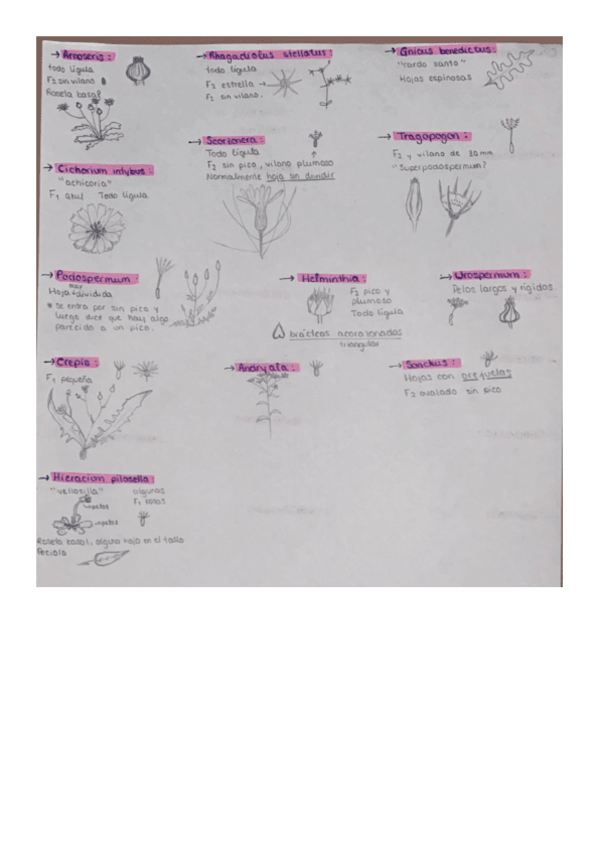 → Arnoseris:
todo lígula
F2 sin vilano
Roseta basal
→ Rhagadiolus stellatus:
todo lígula
F2 estrella →
F2 sin vilano.
→ Cnicus benedictus:
"cardo santo"
Hojas espinosas
→ Cichorium intybus:
"achicoria"
F1 azul Todo lígula
→ Scorzonera:
Todo lígula
F2 sin pico, vilano plumoso
Normalmente hoja sin dividir
→ Tragopogon:
F2 y vilano de 30mm
"Superpodospermum?
→ Podospermum:
Hoja muy dividida
* Se entra por sin pico y
luego dice que hay algo
parecido a un pico.
→ Helminthia:
F2 pico y
plumoso
Todo lígula
brácteas acorazonadas
triangular
→ Urospermum:
Pelos largos y rígidos.
→ Crepis:
F1 pequeña
→ Andryala:
→ Sonchus:
Hojas con orejuelas
F2 ovalado sin pico
→ Hieracion pilosella:
"vellosilla"
algunas
F1 rosas
→pelos
→pelos
Roseta basal, alguna hoja en el tallo
Peciolo